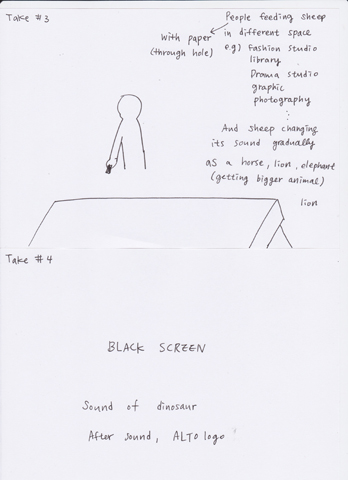 Take #3
People feeding sheep
With paper in different space
(through hole) e.g) Fashion studio
library
Drama studio
graphic
photography
And sheep changing
its sound gradually
as a horse, lion, elephant
(getting bigger animal)
lion
Take #4
BLACK SCREEN
Sound of dinosaur
After sound, ALTO logo